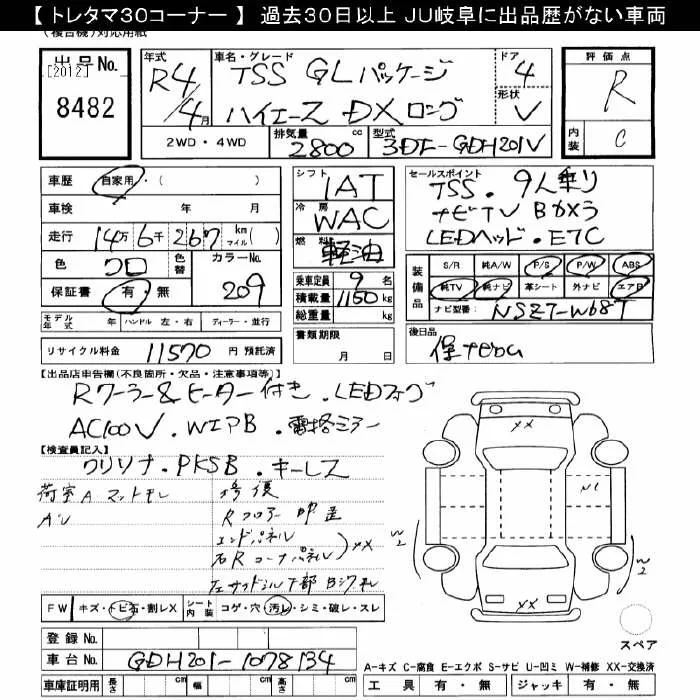 【 トレタマ30コーナー 】 過去30日以上 JU岐阜に出品歴がない車両
(複合機)対応用紙
出品No.
[2012]
8482
年式
R4/4月
車名・グレード
TSS GLパッケージ
ハイエース DXロング
ドア
4
形状
V
2WD・4WD
排気量
2800cc
型式
3DF-GDH201V
評価点
R
内装
C
車歴 自家用・( )
車検 年 月
走行 14万6千267 km マイル( )
色 クロ 色替 カラーNo. 209
保証書 有・無
モデル年式 ハンドル 左・右 ディーラー・並行
リサイクル料金 11570 円 預託済
シフト
IAT
冷房
WAC
燃料
軽油
乗車定員 9名
積載量 1150kg
総重量 kg
書類期限
月 日
セールスポイント
TSS・9人乗り
ナビTV Bカメラ
LEDヘッド・ETC
装備品
S/R 純A/W P/S P/W ABS
純TV 純ナビ 革シート 外ナビ エアB
ナビ型番: NSZT-W68T
後日品
【出品店申告欄(不良箇所・欠品・注意事項等)】
Rクーラー&ヒーター付き・LEDフォグ
AC100V・WエアB・電格ミラー
【検査員記入】
クリソナ・PKSB・キーレス
荷室A マットモレ
修復
Rフロアー
エンドパネル
右Rコーナーパネル) XX
FW キズ・トビ石・割レX
シート内装 コゲ・穴・汚レ・シミ・破レ・スレ
登録No.
車台No. GDH201-1078134
車庫証明用 長さ cm 幅 cm 高さ cm
XX
W2
W2
XX
スペア
A-キズ C-腐食 E-エクボ S-サビ U-凹ミ W-補修 XX-交換済
工具 有・無 ジャッキ 有・無